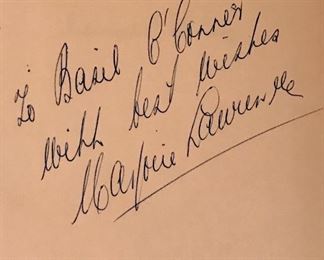 To Basil O'Connor
with best wishes
Marjorie Lawrence